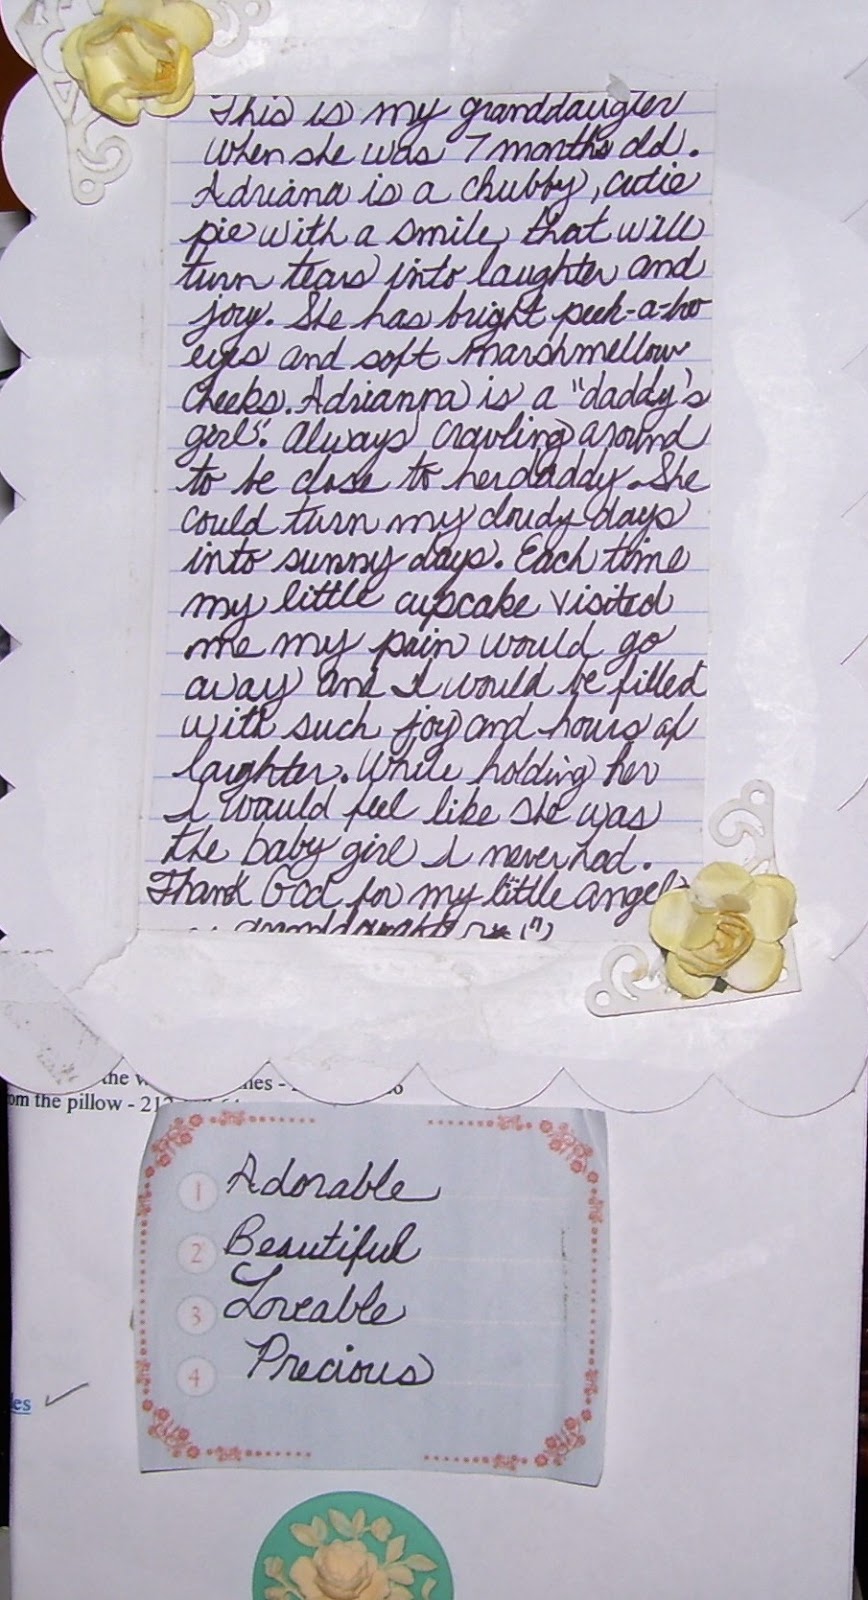 This is my granddaugter
when she was 7 months old.
Adriana is a chubby, cutie
pie with a smile that will
turn tears into laughter and
joy. She has bright peek-a-boo
eyes and soft marshmellow
cheeks. Adrianna is a "daddy's
girl". Always crawling around
to be close to her daddy. She
could turn my cloudy days
into sunny days. Each time
my little cupcake visited
me my pain would go
away and I would be filled
with such joy and hours of
laughter. While holding her
I would feel like she was
the baby girl I never had.
Thank God for my little angel
granddaughter
the
om the pillow - 212
1 Adorable
2 Beautiful
3 Loveable
4 Precious
es